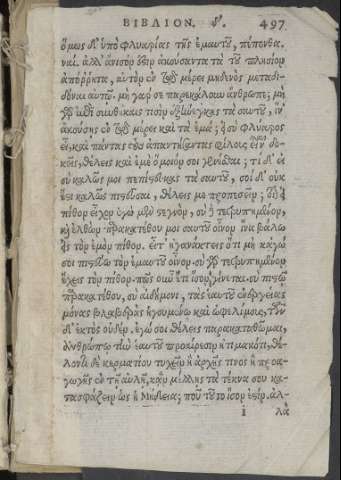 ΒΙΒΛΙΟΝ. Δ'. 497
ὅμως δ' ὑπὸ φλυαρίας τῆς ἐμαυτοῦ, πέπονθα.
ναί. ἀλλ' ἄνισόν ἐστιν ἀκούσαντα τὰ τοῦ πλησίον
ἀπόῤῥητα, αὐτὸν ἐν τῷ μέρει μηδενὸς μεταδι-
δόναι αὐτῷ. μὴ γάρ σε παρεκάλουν ἄνθρωπε; μὴ
γὰρ ἐπὶ συνθήκαις τισὶν ἐξήνεγκας τὰ σαυτοῦ, ἵν'
ἀκούσῃς ἐν τῷ μέρει καὶ τὰ ἐμά; εἰ σὺ φλύαρος
εἶ, καὶ πάντας τοὺς ἀπαντήσαντας φίλους εἶναι δο-
κεῖς, θέλεις καὶ ἐμὲ ὅμοιόν σοι γενέσθαι; τί δ' εἰ
σὺ καλῶς μοι πεπίστευκας τὰ σαυτοῦ, σοὶ δ' οὐκ
ἔστι καλῶς πιστεῦσαι, θέλεις με προπεσεῖν;
πίθον εἶχον ἐγὼ μὲν στεγνὸν, σὺ δὲ τετρυπημένον,
καὶ ἐλθὼν παρακατέθου μοι σαυτοῦ οἶνον ἵνα βάλω
εἰς τὸν ἐμὸν πίθον. εἶτ' ἠγανάκτεις ὅτι μὴ κἀγώ
σοι πιστεύω τὸν ἐμαυτοῦ οἶνον. σὺ γὰρ τετρυπημένον
ἔχεις τὸν πίθον. πῶς οὖν ἔτι ἴσον γίνεται. σὺ πιστῷ
παρακατέθου, σὺ αἰδήμονι, τὰς ἑαυτοῦ ἐνεργείας
μόνας βλαβερὰς ἡγουμένῳ καὶ ὠφελίμους, τῶν
δ' ἐκτὸς οὐδέν. ἐγώ σοι θέλεις παρακαταθῶμαι,
ἀνθρώπῳ τὴν ἑαυτοῦ προαίρεσιν ἠτιμακότι, θέ-
λοντι δὲ κερματίου τυχεῖν ἢ ἀρχῆς τινος ἢ προα-
γωγῆς ἐν τῇ αὐλῇ, κἂν μέλλῃς τὰ τέκνα σου κα-
τασφάζειν ὡς ἡ Μήδεια; ποῦ τοῦτο ἴσον ἐστίν. ἀλ-
λὰ